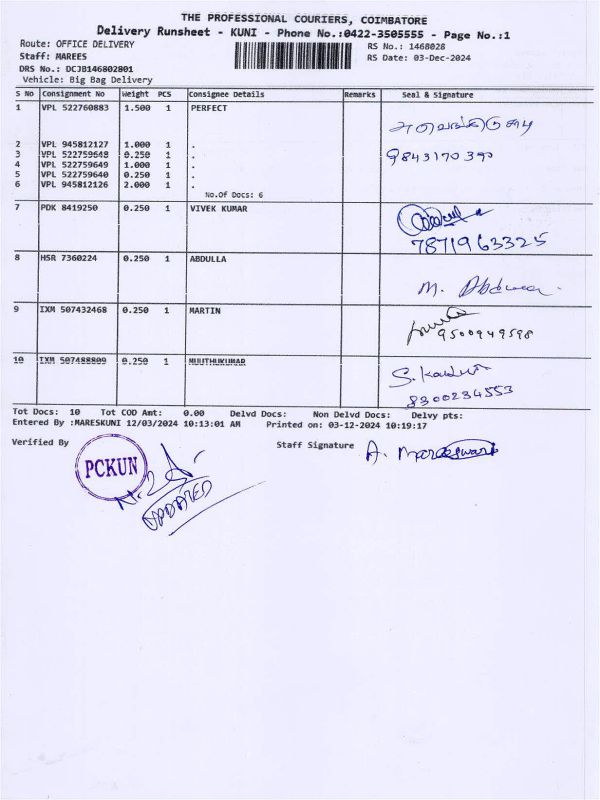 THE PROFESSIONAL COURIERS, COIMBATORE
Delivery Runsheet - KUNI - Phone No.:0422-3505555 - Page No.:1
Route: OFFICE DELIVERY RS No.: 1468028
Staff: MAREES RS Date: 03-Dec-2024
DRS No.: DCJB146802801
Vehicle: Big Bag Delivery
S No Consignment No Weight PCS Consignee Details Remarks Seal & Signature
1 VPL 522760883 1.500 1 PERFECT
2 VPL 945812127 1.000 1 .
3 VPL 522759648 0.250 1 . 9843170390
4 VPL 522759649 1.000 1 .
5 VPL 522759640 0.250 1 .
6 VPL 945812126 2.000 1 .
No.Of Docs: 6
7 PDK 8419250 0.250 1 VIVEK KUMAR
7871963325
8 HSR 7360224 0.250 1 ABDULLA
M.
9 IXM 507432468 0.250 1 MARTIN
9500949598
10 IXM 507488809 0.250 1 MUUTHUKUMAR
8300234553
Tot Docs: 10 Tot COD Amt: 0.00 Delvd Docs: Non Delvd Docs: Delvy pts:
Entered By :MARESKUNI 12/03/2024 10:13:01 AM Printed on: 03-12-2024 10:19:17
Verified By Staff Signature A. Mareeswari
PCKUN
UPDATED